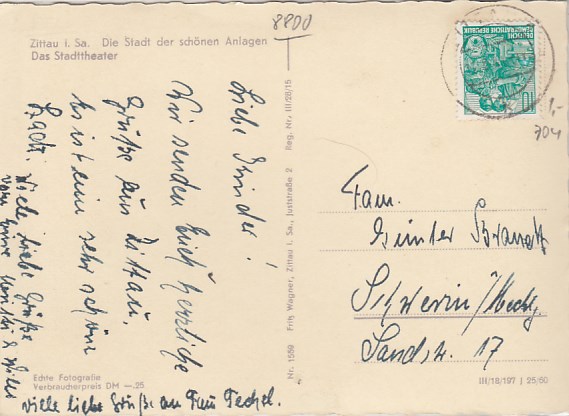 Zittau i. Sa. Die Stadt der schönen Anlagen
Das Stadttheater
8800
DEUTSCHE
DEMOKRATISCHE REPUBLIK
10
1,-
304
Liebe Kinder!
Wir senden Euch herzliche
Grüße aus Zittau.
Es ist eine sehr schöne
Stadt. Viele liebe Grüße
von
viele liebe Grüße an Frau Techel.
Reg. Nr. III/28/15
Nr. 1559 Fritz Wagner, Zittau i. Sa., Juststraße 2
Fam.
Günter Brandt
Schwerin/Meckl.
Sandstr. 17
Echte Fotografie
Verbraucherpreis DM —.25
III/18/197 | 25/60